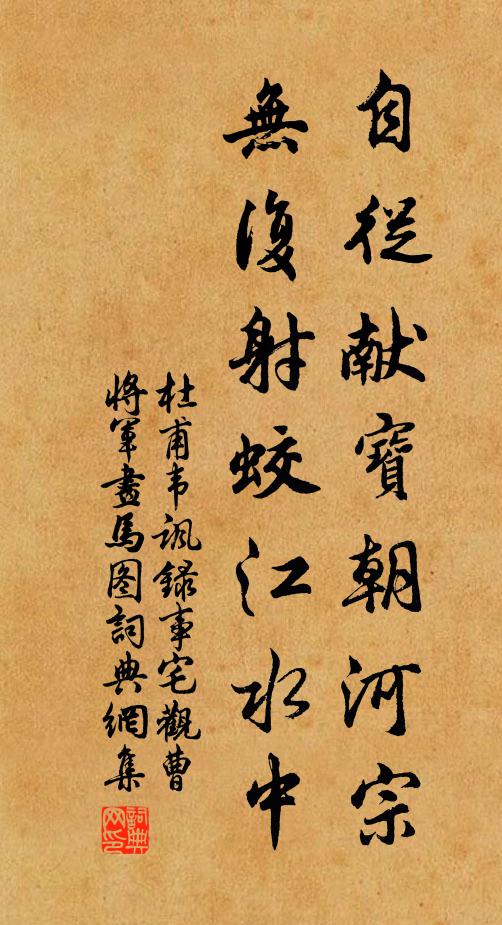 自從献寶朝河宗
無復射蛟江水中
杜甫韦諷録事宅觀曹
將軍畫馬图詞典網集
詞典网印